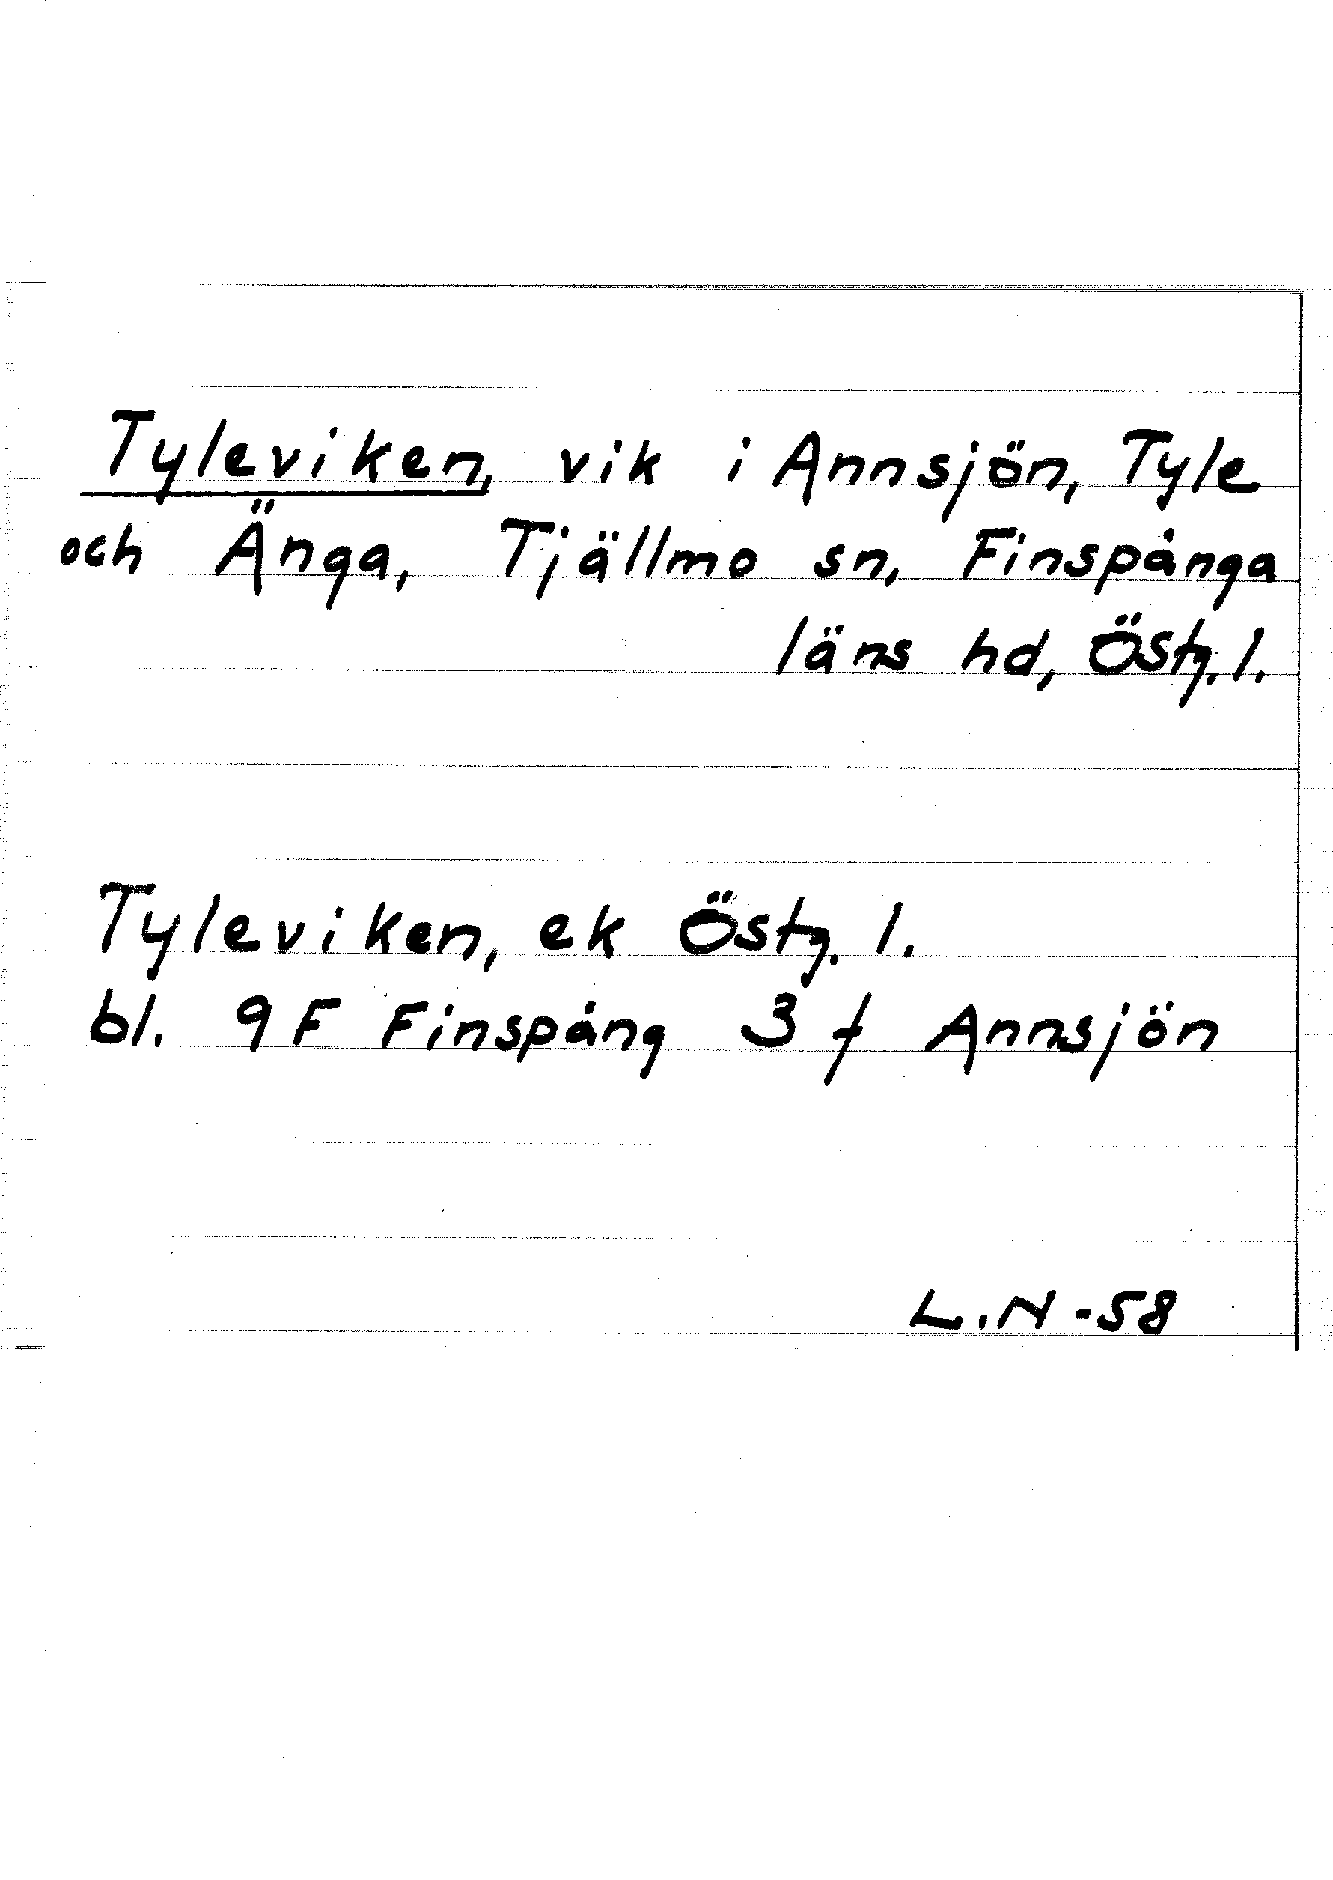 Tyleviken, vik i Annsjön, Tyle
och Änga, Tjällmo sn, Finspånga
läns hd, Östg. l.
Tyleviken, ek Östg. l.
bl. 9F Finspång 3 f Annsjön
L.N -58